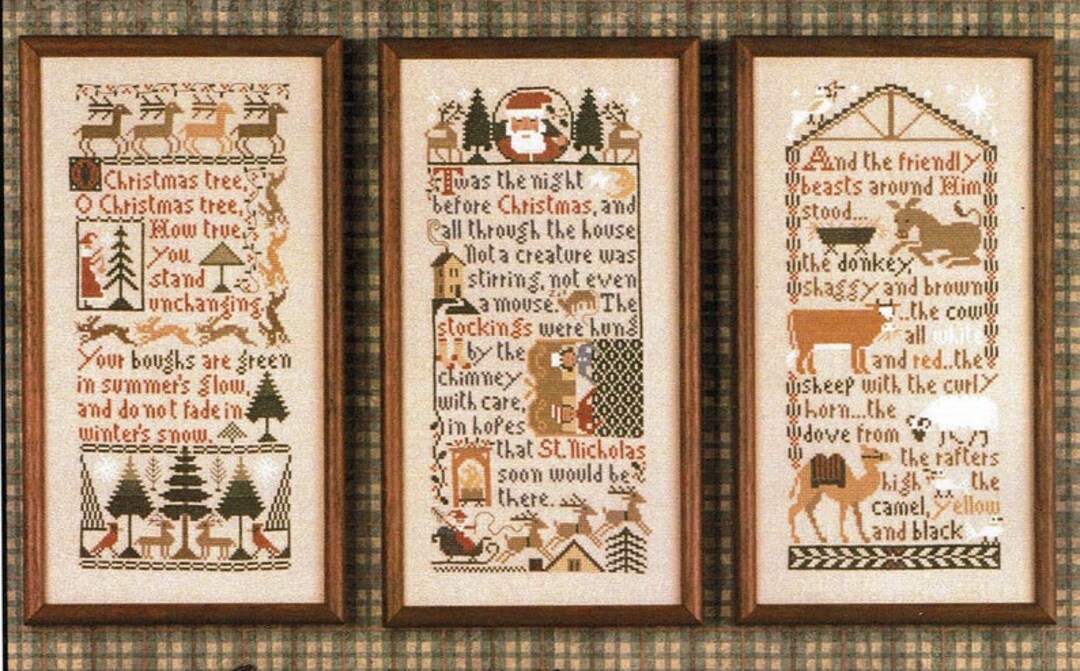 O Christmas tree,
O Christmas tree,
How true,
you
stand
unchanging.
Your boughs are green
in summer's glow,
and do not fade in
winter's snow.
Twas the night
before Christmas, and
all through the house
Not a creature was
stirring, not even
a mouse. The
stockings were hung
by the
chimney
with care,
in hopes
that St. Nicholas
soon would be
there..
And the friendly
beasts around Him
stood...
the donkey,
shaggy and brown
...the cow
all white
and red..the
sheep with the curly
horn...the
dove from
the rafters
high the
camel, yellow
and black